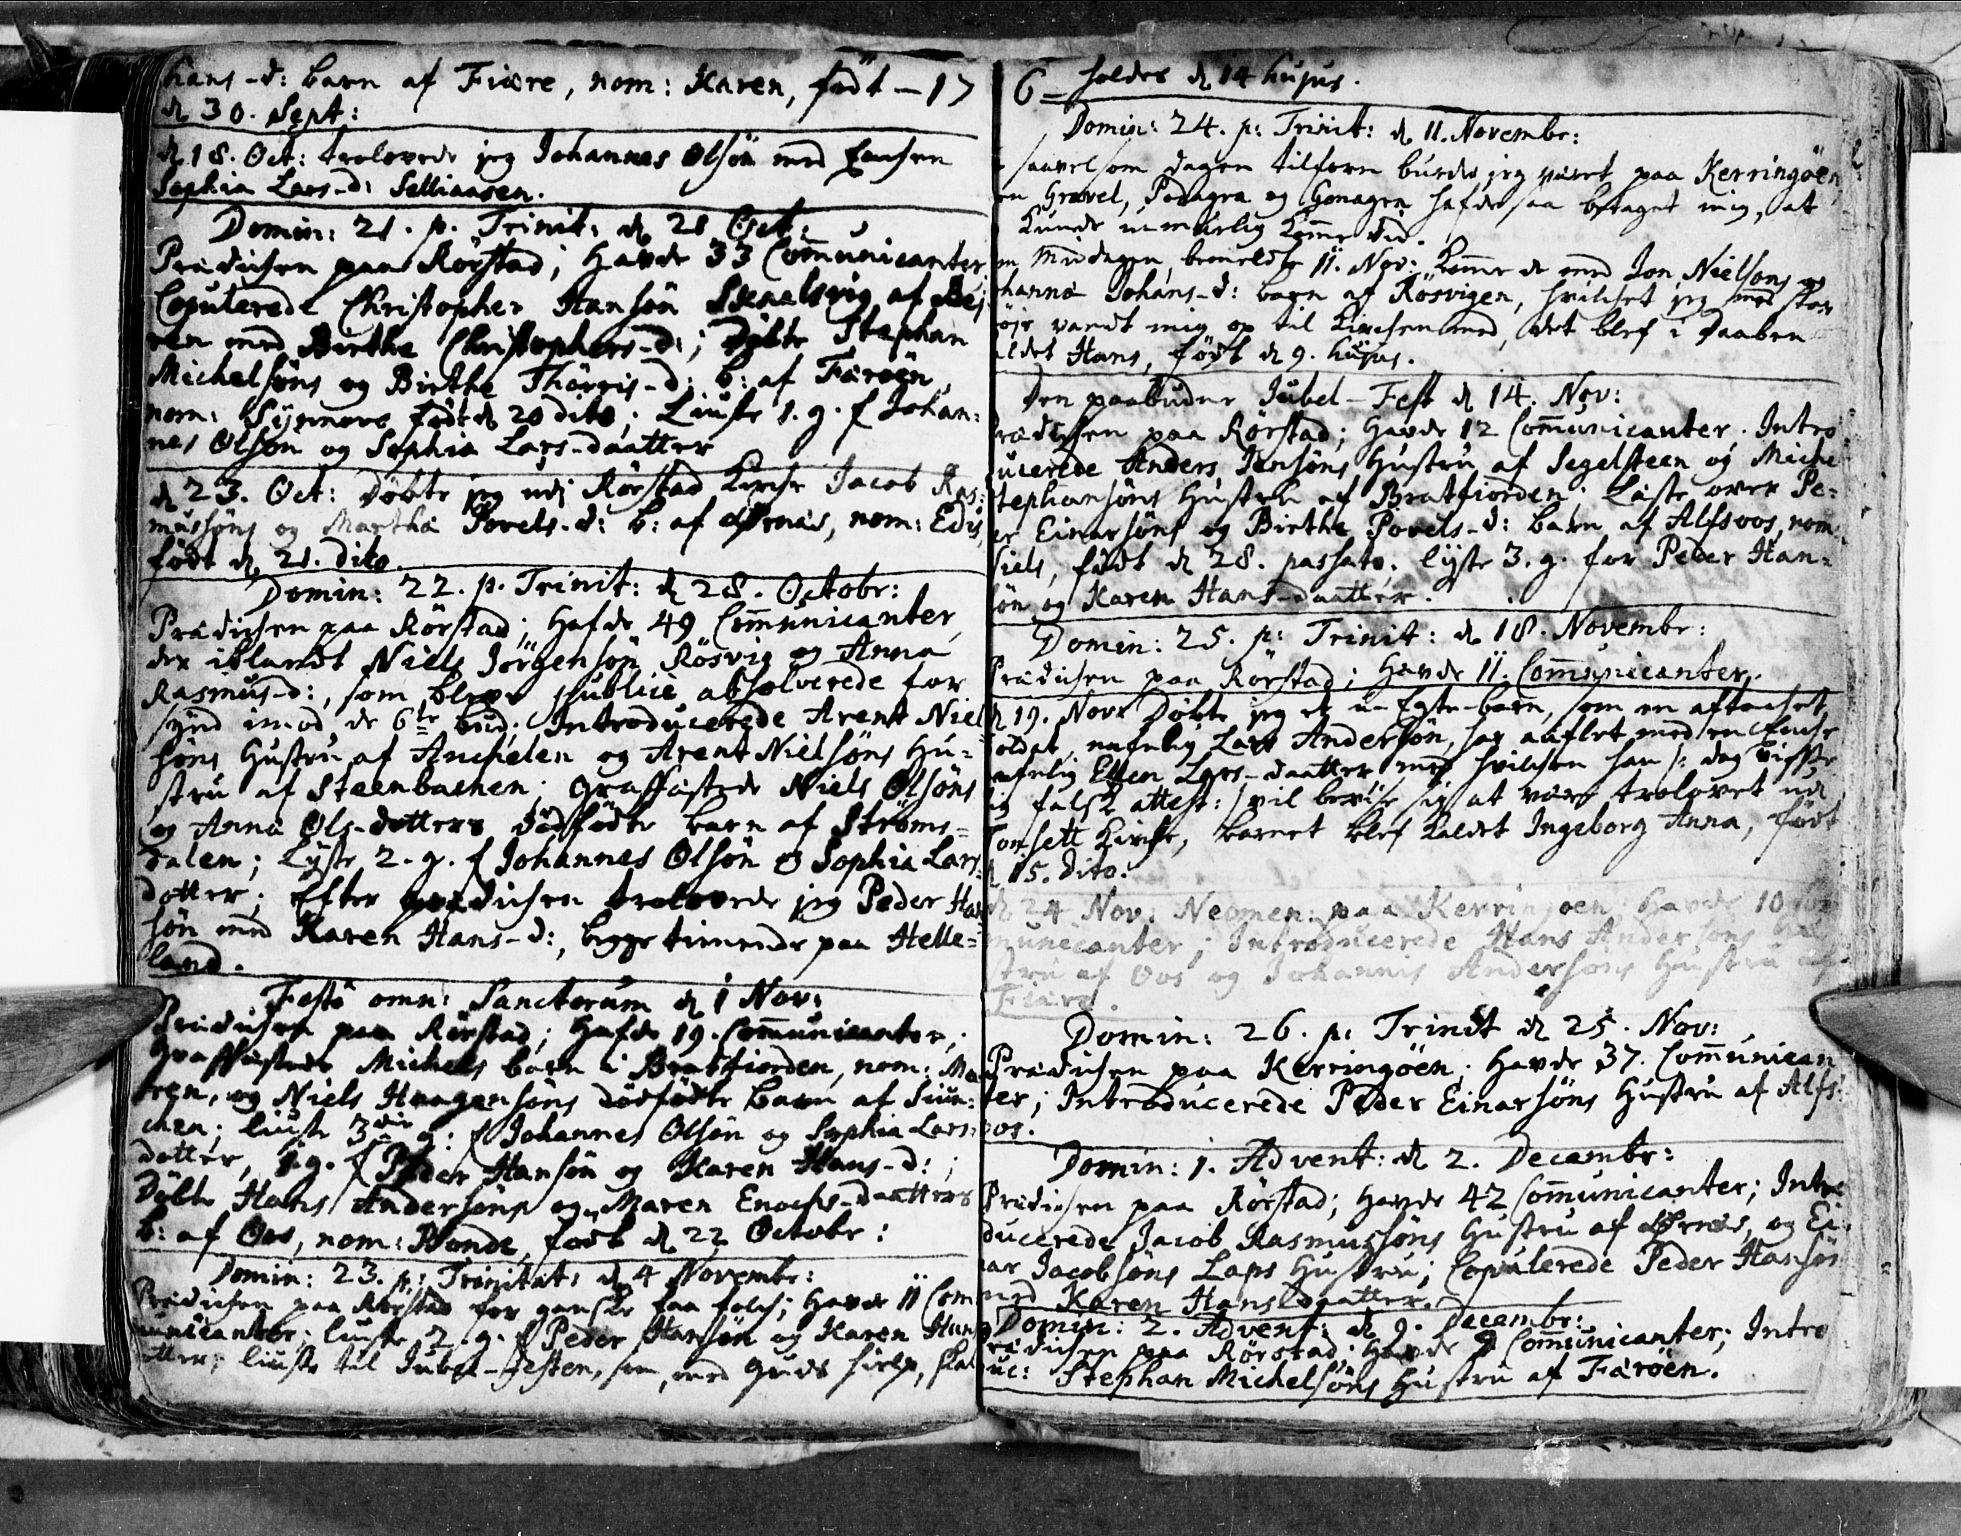 hans-d: barn af Fiære, nom: Karen, födt — 17
d 30. Sept:
d 18. Oct: trolovede jeg Johannes Olsön med Enchen
Sophia Lars-d: Selliaasen.
Domin: 21. p. Trinit: d 21 Oct:
Prædichen paa Rörstad; Havde 33 Com̅unicanter
Copulerede Christopher Hansön Skaalsvig af Bej
ren med Birthe Christophers-d:; Döbte Stephan
Michelsöns og Birthe Thörris-d: b: af Færöen,
nom: Synnove födt d 20 dito; Liuste 1. g. f Johan:
nes Olsön og Sophia Lars-daatter
d 23. Oct: Döbte jeg udi Rörstad Kirche Jacob Ras:
musöns og Martha Povels-d: b: af Örnæs, nom: Edis,
födt d 21. dito.
Domin: 22. p. Trinit: d 28. Octobr:
Prædichen paa Rörstad; Hafde 49 Com̅unicanter
der iblandt Niels Jörgensön Rösvig og Anna
Rasmus-d:, som blevr publicè absolverede for
synd imod de 6te bud; Introducerede Arent Niel
söns Hustru af Anchelen og Arent Nielsöns Hu-
stru af Steenbachen; Graffæstede Niels Olsöns
og Anna Ols-dotters dödfödte barn af Ströms-
dalen; Lyste 2. g. f Johannes Olsön & Sophia Lars
dotter; Efter prædichen trolovede jeg Peder Han
sön med Karen Hans-d:, begge tienende paa Helle-
land.
Festo omn: Sanctorum d 1 Nov:
Prædichen paa Rörstad; Hafde 19. Com̅unicanter;
Graffæstede Michels barn i Bratfiorden, nom: Ma
ren, og Niels Haagensöns dödfödte barn af Siun-
chen; liuste 3die g: f Johannes Olsön og Sophia Lars:
dotter, 1. g. f Peder Hansön og Karen Hans-d:;
Döbte Hans Andersöns og Maren Enochs-daatters
b: af Oos, nom: Bonde, födt d 22 Octobr:
Domin: 23. p: Trinitat: d 4 Novembr:
Prædichen paa Rörstad for ganske faa folch; Havde 11 Com
unicanter; liuste 2. g. f Peder Hansön og Karen Hans
atter; liuste til Jubel-Festen, som, med Guds hielp, skal
6 — holdes d 14 hujus.
Domin: 24. p: Trinit: d 11. Novembr:
saavelsom dagen tilforn burde jeg været paa Kerringöen
en Gravel, Podagra og Gonagra hafde saa betaget mig, at
Kunde umuelig kom̅e did.
om Middagen bemeldte 11. Nov: kom̅e de med Jon Nielsöns og
hanna Johans-d: barn af Rösvigen, hvilchet jeg med stor
öie vandt mig op til Kirchen med, det blef i Daaben
aldet Hans, födt d 9. hujus.
Den paabudne Jubel-Fest d 14. Nov:
rædichen paa Rörstad; Havde 12 Com̅unicanter. Intro
ucerede Anders Jensöns Hustru af Segelsteen og Miche
Stephansöns Hustru af Bratfiorden; Læste over Pe-
er Einarsöns og Birthe Povels-d: barn af Alfsoos, nom:
Niels, födt d 28. passato. lyste 3. g. for Peder Han-
sön og Karen Hans-daatter.
Domin: 25. p: Trinit: d 18. Novembr:
Prædichen paa Rörstad; Havde 11. Com̅unicanter.
d 19. Novr Döbte jeg et u-Egte-barn, som en aftachet
Soldat, nafnlig Lars Andersön, har auflet med en Enche
nafnlig Ellen Lars-daatter, med hvilchen han p: dag
ig falsk attest: vil bevise sig at være trolovet udi
Tonsett Kirche, barnet blef kaldet Ingeborg Anna, födt
d 15. Dito.
d 24 Nov: Neomen: paa Kerringöen Havde 10 Com
municanter; Introducerede Hans Andersöns Hu
stru af Oos og Johannis Andersöns Hustru af
Fiære.
Domin: 26. p: Trinit d 25. Nov:
Prædichen paa Kerringöen; Havde 37. Com̅unican
ter; Introducerede Peder Einarsöns Hustru af Alfs
oos.
Domin: 1. Advent: d 2. Decembr:
Prædichen paa Rörstad; Havde 42 Com̅unicanter; Intro
ducerede Jacob Rasmussöns Hustru af Örnæs, og Ei
nar Jacobsöns Laps Hustru; Copulerede Peder Hansön
med Karen Hansdaatter.
Domin: 2. Advent: d 9. Decembr:
rædichen paa Rörstad; Havde 9 Com̅unicanter; Intro
uc: Stephan Michelsöns Hustru af Færöen.